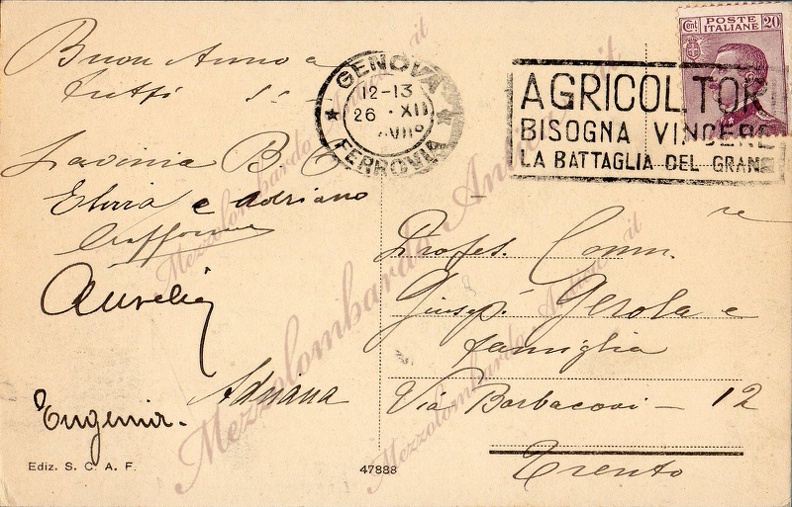 Buon Anno a
tutti
Lavinia B C
Elvira e Adriano
Aurelia
Adriana
Eugenia.
Ediz. S. C. A. F.
47888
GENOVA
12-13
26 · XII
FERROVIA
Cent. POSTE ITALIANE 20
AGRICOLTOR
BISOGNA VINCERE
LA BATTAGLIA DEL GRANO
Profes. Comm.re
Giusep. Gerola e
famiglia
Via Barbacovi – 12
Trento
Mezzolombardo
Mezzolombardo
Mezzolombardo